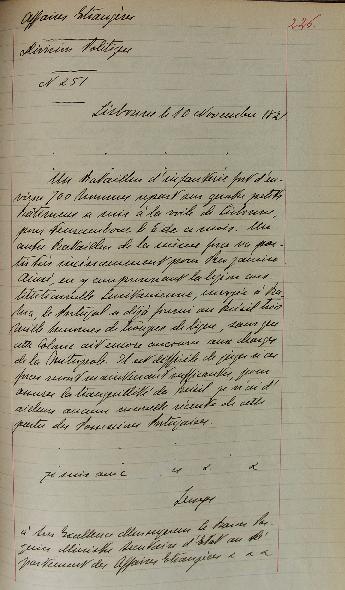 Affaires Etrangères
226.
Division Politique
N 251
Lisbonne le 10 Novembre 1821
Un Bataillon d'infanterie fort d'en-
viron 700 hommes reparti sur quatre petits
bâtimens a mis à la voile de Lisbonne,
pour le 6 de ce mois. Un
autre Bataillon de la même force va par-
tir pour Rio Janeiro
Ainsi, en y comprennant la légion cons-
titutionnelle Lusitanienne, envoyée à Ba-
hia, le Portugal a déjà fourni au Brésil trois
mille hommes de troupes de ligne, sans que
cette Colonie ait encore concouru aux charges
de la Métropole. Il est difficile de juger si ces
forces seront maintenant suffisantes, pour
assurer la tranquillité du Brésil je n'ai d'
ailleurs aucune nouvelle récente de cette
partie des Domaines Portugaises.
je suis avec
Lesseps
à Son Excellence Monseigneur le Baron Pas-
quier Ministre Secrétaire d'Etat au Dé-
partement des Affaires Etrangères